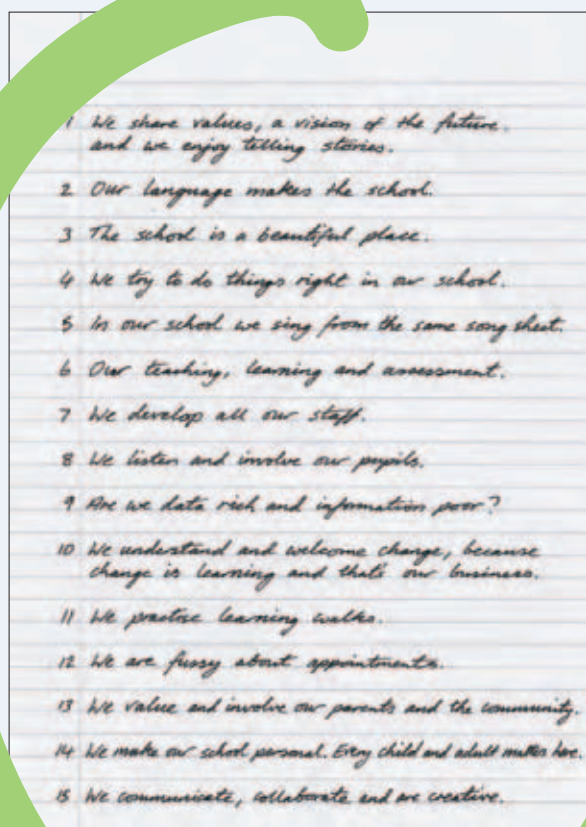 1 We share values, a vision of the future.
and we enjoy telling stories.
2 Our language makes the school.
3 The school is a beautiful place.
4 We try to do things right in our school.
5 In our school we sing from the same song sheet.
6 Our teaching, learning and assessment.
7 We develop all our staff.
8 We listen and involve our pupils.
9 Are we data rich and information poor?
10 We understand and welcome change, because
change is learning and that's our business.
11 We practise learning walks.
12 We are fussy about appointments.
13 We value and involve our parents and the community.
14 We make our school personal. Every child and adult matters here.
15 We communicate, collaborate and are creative.